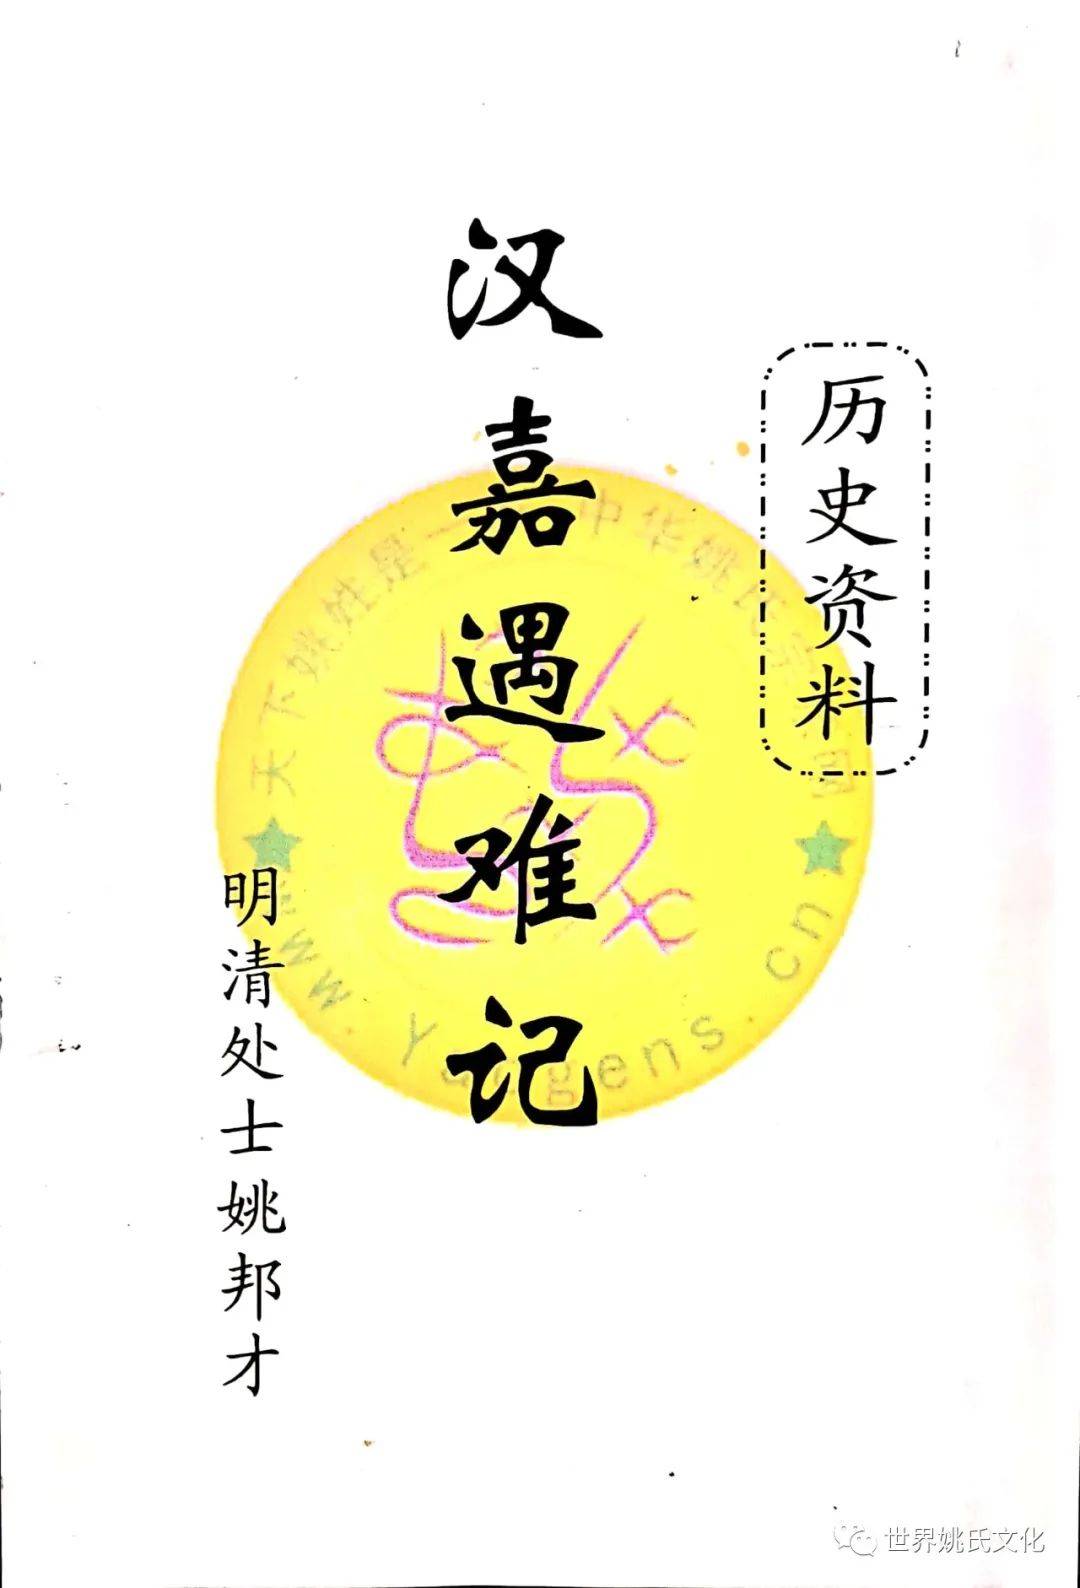 历史资料
汉嘉遇难记
明清处士姚邦才
天下姚姓是一
中华姚氏宗
网
www.yaogens.cn
世界姚氏文化